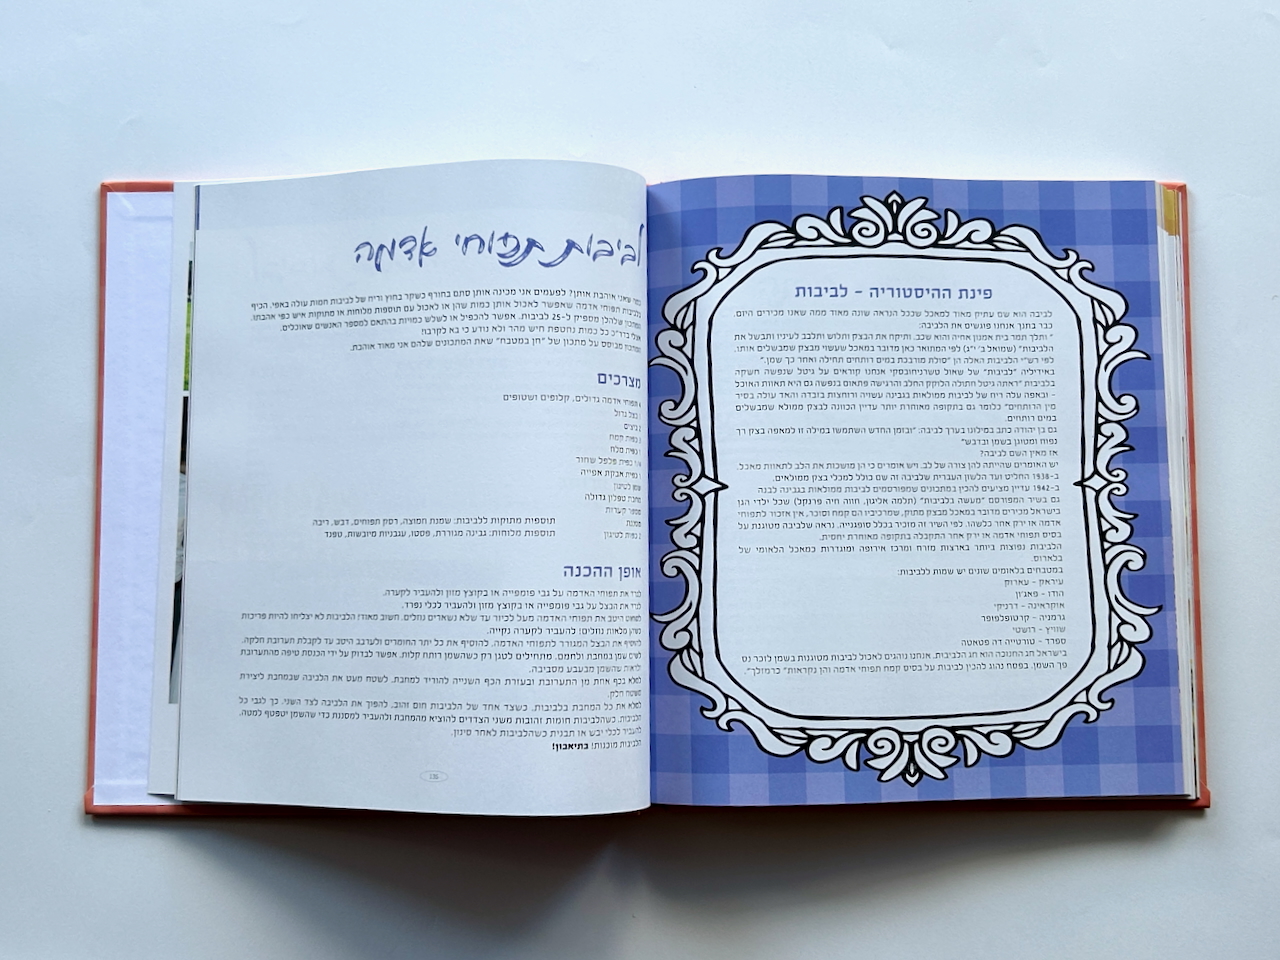 פינת ההיסטוריה - לביבות
לביבה הוא שם עתיק מאוד למאכל שככל הנראה שונה מאוד ממה שאנו מכירים היום.
כבר בתנך אנחנו פוגשים את הלביבה:
" ותלך תמר בית אמנון אחיה והוא שכב. ותיקח את הבצק ותלוש ותלבב לעיניו ותבשל את
הלביבות" (שמואל ב' י"ג) לפי המתואר כאן מדובר במאכל שעשוי מבצק שמבשלים אותו.
לפי רש"י הלביבות האלה הן "סולת מורבכת במים רותחים תחילה ואחר כך שמן."
באידיליה "לביבות" של שאול טשרניחובסקי אנחנו קוראים על גיטל שנפשה חשקה
בלביבות "ראתה גיטל חתולה הלוקק החלב והרגישה פתאום בנפשה גם היא תאוות האוכל
- ובאפה עלה ריח של לביבות ממולאות בגבינה עשויה ורוחצות בזבדה והאד עולה בסיר
מין הרותחים" כלומר גם בתקופה מאוחרת יותר עדיין הכוונה לבצק ממולא שמבשלים
במים רותחים.
גם בן יהודה כתב במילונו בערך לביבה: "ובזמן החדש השתמשו במילה זו למאפה בצק רך
נפוח ומטוגן בשמן ובדבש"
אז מאין השם לביבה?
יש האומרים שהייתה להן צורה של לב. ויש אומרים כי הן מושכות את הלב לתאוות מאכל.
ב-1938 החליט ועד הלשון העברית שלביבה זה שם כולל למכלי בצק ממולאים.
ב-1942 עדיין מציעים להכין במתכונים שמפורסמים לביבות ממולאות בגבינה לבנה
גם בשיר המפורסם "מעשה בלביבות" (תלמה אליגון. חווה חיה פרנקל) שכל ילדי הגן
בישראל מכירים מדובר במאכל מבצק מתוק, שמרכיביו הם קמח וסוכר, אין אזכור לתפוחי
אדמה או ירק אחר כלשהו. לפי השיר זה מזכיר בכלל סופגנייה. נראה שלביבה מטוגנת על
בסיס תפוחי אדמה או ירק אחר התקבלה בתקופה מאוחרת יחסית.
הלביבות נפוצות ביותר בארצות מזרח ומרכז אירופה ומוגדרות כמאכל הלאומי של
בלארוס.
במטבחים בלאומים שונים יש שמות ללביבות:
עיראק - עארוק
הודו - פאג'ון
אוקראינה - דרניקי
גרמניה - קרטופלפופר
שוויץ - רושטי
ספרד - טורטייה דה פטאטה
בישראל חג החנוכה הוא חג הלביבות. אנחנו נוהגים לאכול לביבות מטוגנות בשמן לזכר נס
פך השמן. בפסח נהוג להכין לביבות על בסיס קמח תפוחי אדמה והן נקראות" כרמזלך".
לביבות תפוחי אדמה
שאני אוהבת אותן? לפעמים אני מכינה אותן סתם בחורף כשקר בחוץ וריח של לביבות חמות עולה באפי. הכיף
בלביבות תפוחי אדמה שאפשר לאכול אותן כמות שהן או לאכול עם תוספות מלוחות או מתוקות איש כפי אהבתו.
שלהלן מספיק ל-25 לביבות. אפשר להכפיל או לשלש כמויות בהתאם למספר האנשים שאוכלים.
אצלי בדר"כ כל כמות נחטפת חיש מהר ולא נודע כי בא לקרבה!
מבוסס על מתכון של "חן במטבח" שאת המתכונים שלהם אני מאוד אוהבת.
מצרכים
4 תפוחי אדמה גדולים, קלופים ושטופים
1 בצל גדול
2 ביצים
כפית קמח
1 כפית מלח
כפית פלפל שחור
1 כפית אבקת אפייה
שמן לטיגון
מחבת טפלון גדולה
מספר קערות
מסננת
2 כפות לטיגון
תוספות מתוקות ללביבות: שמנת חמוצה, רסק תפוחים, דבש, ריבה
תוספות מלוחות: גבינה מגוררת, פסטו, עגבניות מיובשות, טפנד
אופן ההכנה
את תפוחי האדמה על גבי פומפייה או בקוצץ מזון ולהעביר לקערה.
את הבצל על גבי פומפייה או בקוצץ מזון ולהעביר לכלי נפרד.
היטב את תפוחי האדמה מעל לכיור עד שלא נשארים נוזלים. חשוב מאוד! הלביבות לא יצליחו להיות פריכות
מלאות נוזלים! להעביר לקערה נקייה.
להוסיף את הבצל המגורר לתפוחי האדמה. להוסיף את כל יתר החומרים ולערבב היטב עד לקבלת תערובת חלקה.
לשים שמן במחבת ולחמם. מתחילים לטגן רק כשהשמן רותח קלות. אפשר לבדוק על ידי הכנסת טיפה מהתערובת
לראות שהשמן מבעבע מסביבה.
למלא בכף אחת מן התערובת ובעזרת הכף השנייה להוריד למחבת. לשטח מעט את הלביבה שבמחבת ליצירת
משטח חלק.
למלא את כל המחבת בלביבות, כשצד אחד של הלביבה חום זהוב, להפוך את הלביבה לצד השני. כך לגבי כל
הלביבות. כשהלביבות חומות זהובות משני הצדדים להוציא מהמחבת ולהעביר למסננת כדי שהשמן יטפטף למטה.
להעביר לכלי יבש או תבנית כשהלביבות לאחר סינון.
הלביבות מוכנות! בתיאבון!